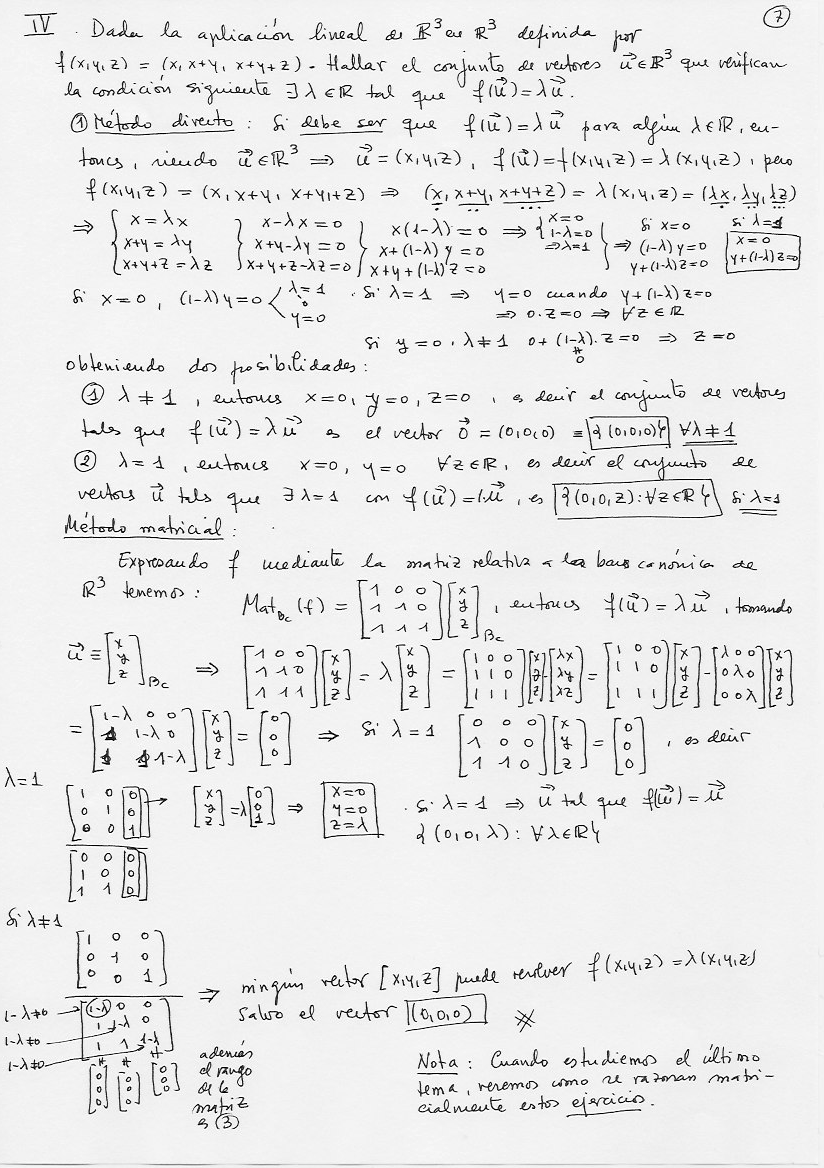 7
IV. Dada la aplicación lineal de ℝ³ en ℝ³ definida por
f(x,y,z) = (x, x+y, x+y+z). Hallar el conjunto de vectores u⃗ ∈ ℝ³ que verifican
la condición siguiente ∃ λ ∈ ℝ tal que f(u⃗) = λu⃗.
① Método directo: Si debe ser que f(u⃗) = λu⃗ para algún λ ∈ ℝ, en-
tonces, siendo u⃗ ∈ ℝ³ ⇒ u⃗ = (x,y,z), f(u⃗) = f(x,y,z) = λ(x,y,z), pero
f(x,y,z) = (x, x+y, x+y+z) ⇒ (x, x+y, x+y+z) = λ(x,y,z) = (λx, λy, λz)
⇒ { x = λx } x-λx = 0 } x(1-λ) = 0 ⇒ { x=0 } Si x=0 Si λ=1
x+y = λy x+y-λy = 0 x+(1-λ)y = 0 1-λ=0 ⇒ (1-λ)y=0 x=0
x+y+z = λz x+y+z-λz=0 x+y+(1-λ)z=0 ⇒λ=1 y+(1-λ)z=0 y+(1-λ)z=0
Si x=0, (1-λ)y=0 < λ=1 · Si λ=1 ⇒ y=0 cuando y+(1-λ)z=0
o
y=0 ⇒ 0·z=0 ⇒ ∀z∈ℝ
Si y=0 · λ≠1 0+(1-λ)·z=0 ⇒ z=0
≠
0
obteniendo dos posibilidades:
① λ≠1, entonces x=0, y=0, z=0, es decir el conjunto de vectores
tales que f(u⃗) = λu⃗ es el vector 0⃗ = (0,0,0) ≡ {(0,0,0)} ∀λ≠1
② λ=1, entonces x=0, y=0 ∀z∈ℝ, es decir el conjunto de
vectores u⃗ tales que ∃λ=1 con f(u⃗)=1·u⃗, es {(0,0,z): ∀z∈ℝ} Si λ=1
Método matricial:
Expresando f mediante la matriz relativa a las bases canónica de
ℝ³ tenemos: Mat_Bc(f) = [1 0 0; 1 1 0; 1 1 1][x; y; z]_Bc, entonces f(u⃗) = λu⃗, tomando
u⃗ ≡ [x; y; z]_Bc ⇒ [1 0 0; 1 1 0; 1 1 1][x; y; z] = λ[x; y; z] = [1 0 0; 1 1 0; 1 1 1][x; y; z]-[λx; λy; λz] = [1 0 0; 1 1 0; 1 1 1][x; y; z]-[λ 0 0; 0 λ 0; 0 0 λ][x; y; z]
= [1-λ 0 0; 1 1-λ 0; 1 1 1-λ][x; y; z] = [0; 0; 0] ⇒ Si λ=1 [0 0 0; 1 0 0; 1 1 0][x; y; z] = [0; 0; 0], es decir
λ=1
[1 0 0; 0 1 0; 0 0 1] → [x; y; z] = λ[0; 0; 1] ⇒ x=0 y=0 z=λ · Si λ=1 ⇒ u⃗ tal que f(u⃗) = u⃗
{(0,0,λ): ∀λ∈ℝ}
[0 0 0; 1 0 0; 1 1 0]
Si λ≠1
[1 0 0; 0 1 0; 0 0 1]
⇒ ningún vector [x,y,z] puede resolver f(x,y,z) = λ(x,y,z)
salvo el vector (0,0,0) ※
1-λ≠0 → [1-λ 0 0
1-λ≠0 → 1 1-λ 0
1-λ≠0 → 1 1 1-λ]
≠ ≠ ≠
[0; 0; 0] [0; 0; 0] [0; 0; 0]
además
el rango
de la
matriz
es (3)
Nota: Cuando estudiemos el último
tema, veremos como se razonan matri-
cialmente estos ejercicios.